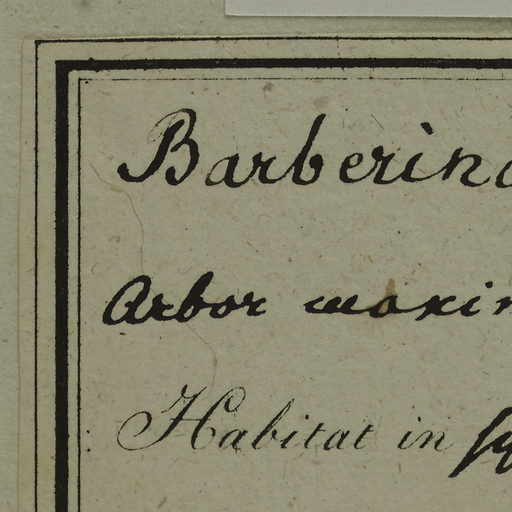 Barberina
Arbor maxim
Habitat in